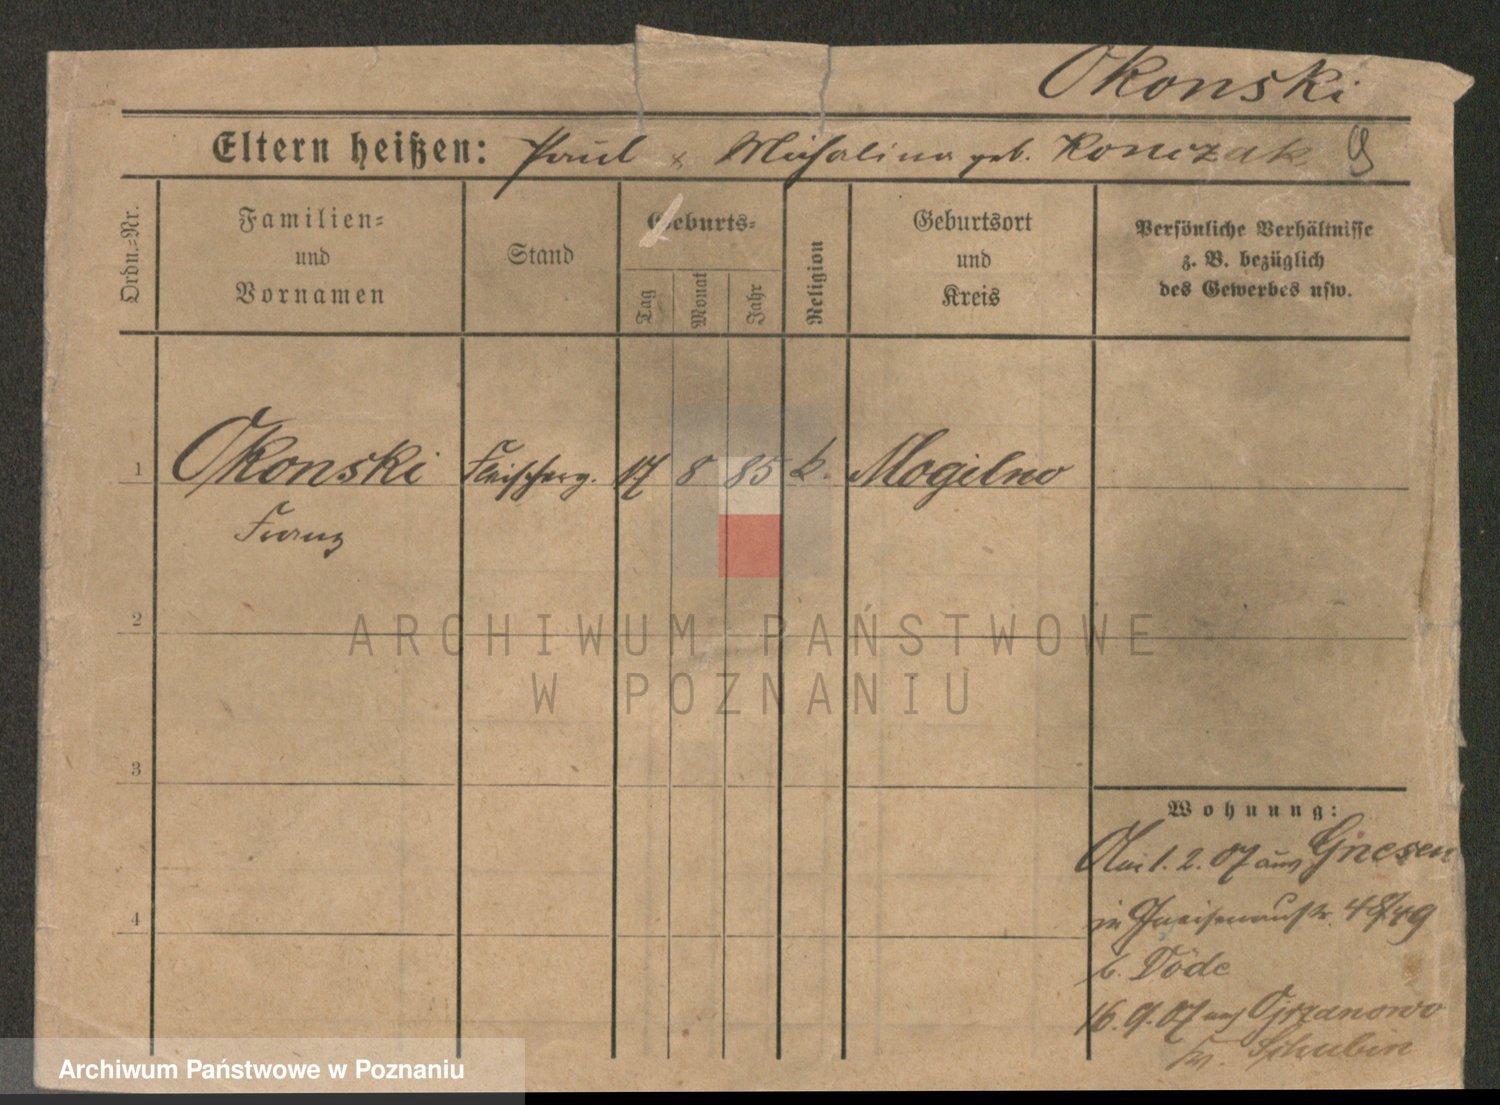 Okonski
Eltern heißen: Paul & Michalina geb. Konczak
Ordn.-Nr.
Familien-
und
Vornamen
Stand
Geburts-
Tag
Monat
Jahr
Religion
Geburtsort
und
Kreis
Persönliche Verhältnisse
z. B. bezüglich
des Gewerbes usw.
1 Okonski Fleischerg. 17 8 85 k. Mogilno
Franz
2
ARCHIWUM PAŃSTWOWE
W POZNANIU
3
Wohnung:
Am 1. 2. 07 aus Gnesen
in Gneisenaustr. 48/49
4
b. Döde
16. 9. 07 nach Ojrzanowo
Kr. Schubin
Archiwum Państwowe w Poznaniu